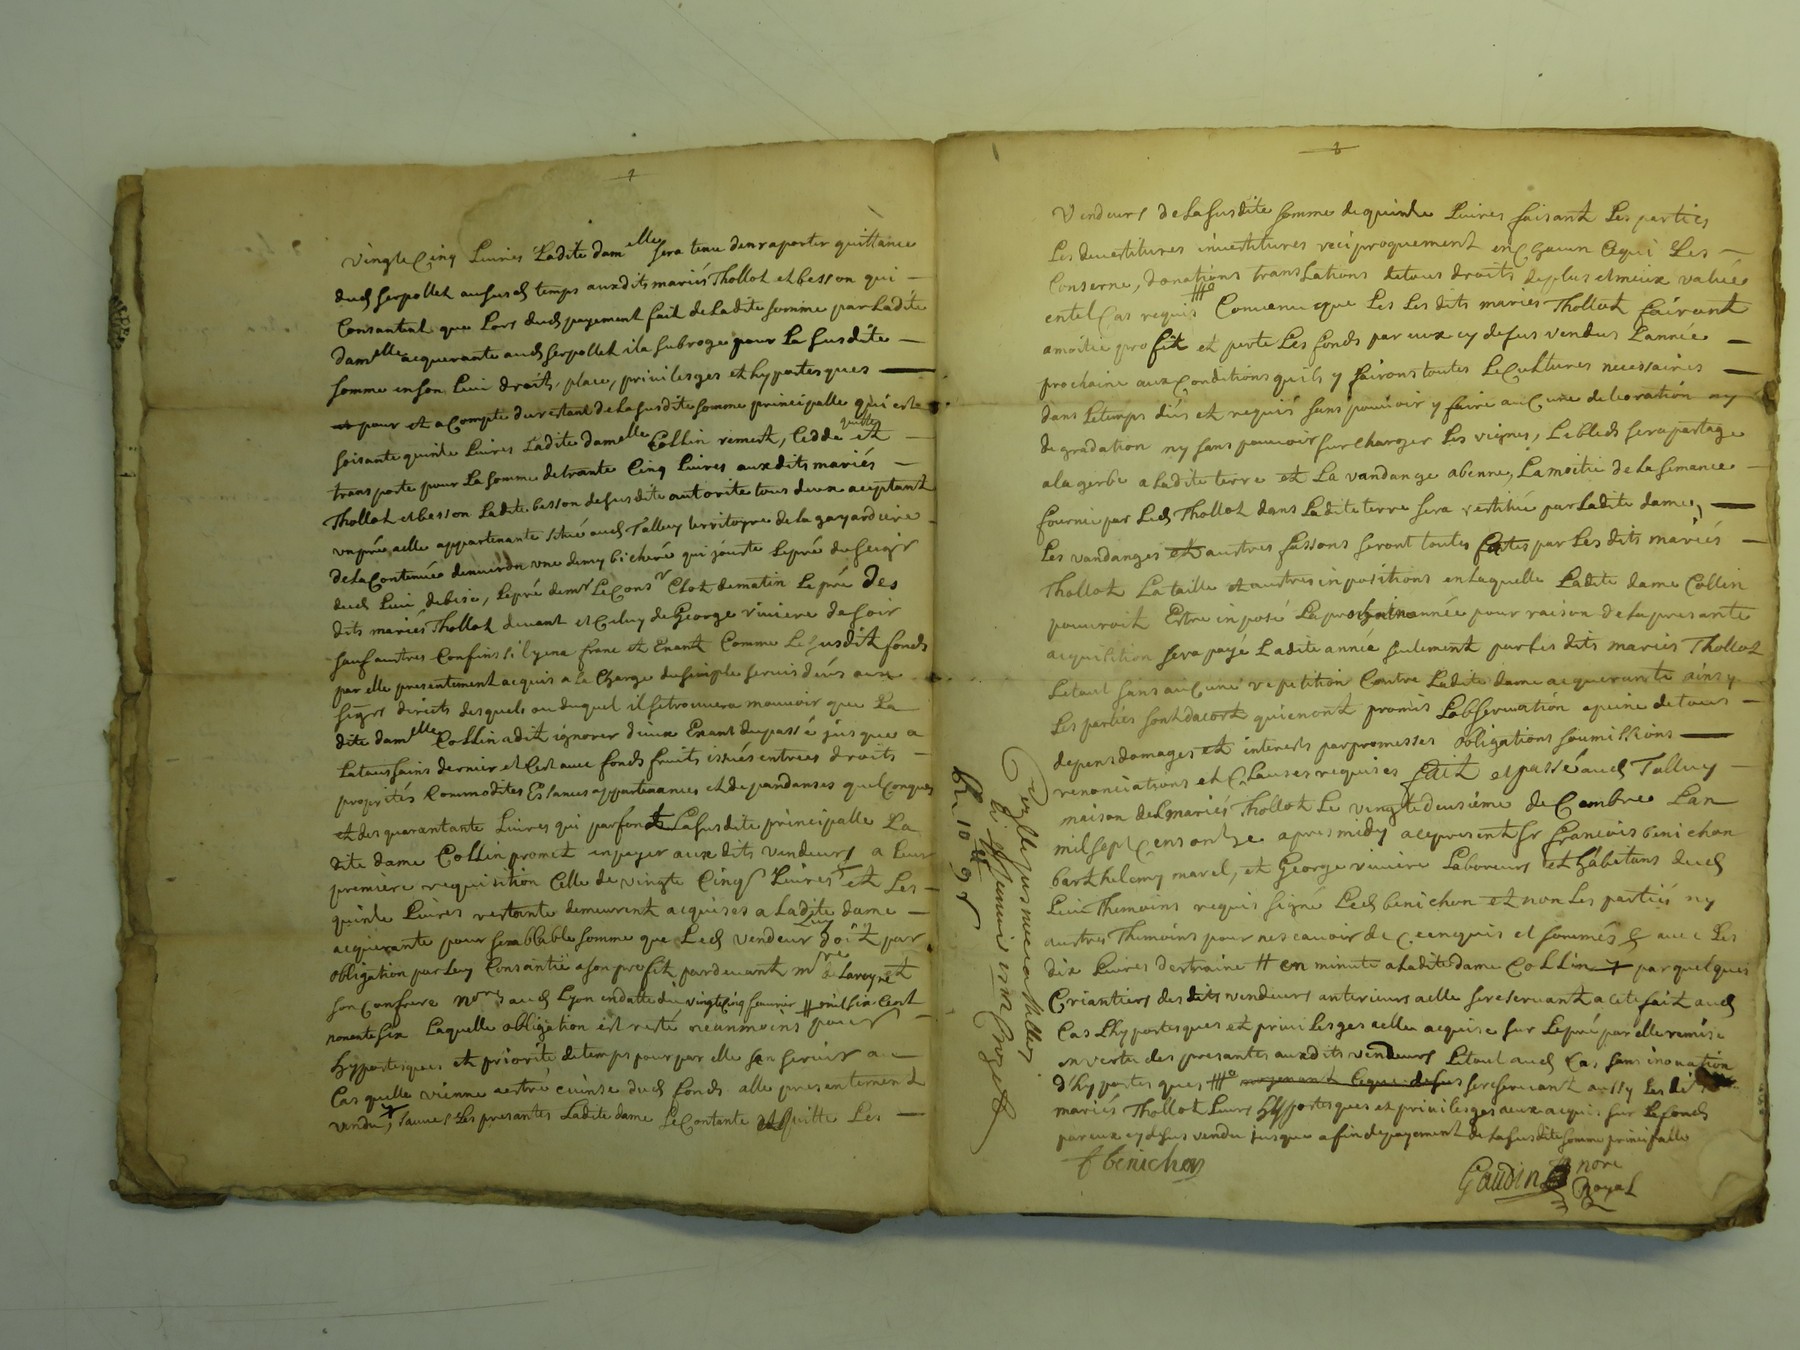 vingte Cinq Livres Ladite damelle sera tenue den raporter quittance
dud Serpollet aususd temps auxdits mariés Thollot et besson qui
Consantent que Lors dud payement fait de Ladite somme par Ladite
damelle acquerante aud Serpollet il a subroge pour La susdite
somme en son Lieu droits, place, privilesges et hypotesques
pour et a Compte du restant de La susdite somme principalle qui est
soisante quinse Livres Ladite damelle Collin remest, Cedde quitte et
transporte pour La somme de trante Cinq Livres auxdits mariés
Thollot et besson Ladite besson de susdite autorité tous deux aceptant
un pré a elle appartenante situé aud Talluy territoyre de la gayardiere
de La Contenüe denviron une demy bicheré qui jouste Le pré du soir
dud Lieu de bise, Le pré de mr Le Consr Clot de matin Le pré des
dits mariés Thollot de vent et Celuy de George viviere de soir
sauf autres Confins sil y en a franc et Exant Comme Le susdit fonds
par elle presentement acquis a La Charge du simple servis deus aux
sigrs directs desquels ou duquel il se trouvera mouvoir que La
dite damelle Collin a dit ignorer dieux Exant du passé jusque a
La tous sains dernier et Cest avec fonds fruits issués entrées droits
proprietés Commodites Esances appartenances et depandanses quelConques
et des quarantante Livres qui parfont La susdite principalle La
dite dame Collin promet en payer aux dits vendeurs a Leur
premiere requisition Celle de vingte Cinq Livres et Les
quinse Livres restante demeurent acquises a Ladite dame
acquerante pour semblable somme que Led vendeur Luy doit par
obligation par Luy Consantie a son profit par devant mre de Laroyre et
son Confrere nores aud Lyon en datte du vingt Cinq fevrier mil six Cent
nonente six Laquelle obligation est resté neanmoins pour
hypotesques et priorité de temps pour par elle sen servir au
Cas quelle vienne aestre evinse dud fonds a elle presentement
vendu, sauve Les presantes Ladite dame se Contante et quitte Les
vendeurs de La susdite somme de quinse Livres faisant Les parties
Les devestitures investitures reciproquement en Chacun Cequi Les
Conserne, donations translations de tous droits de plus et mieux valüe
en tel Cas requis Convenu que Les Les dits mariés Thollot fairont
a moitié profit et perte Les fonds par eux cy desus vendus Lannée
prochaine aux Conditions quils y fairons toutes Les Cultures necessaires
dans Le temps düs et requis sans pouvoir y faire auCune deterioration ny
degradation ny sans pouvoir surcharger Les vignes, Le bled sera partagé
a la gerbe a Ladite terre et La vandange a benne, La moitié de La semance
fournie par Led Thollot dans Ladite terre sera restitué par Ladite dame,
Les vandanges et autres fassons seront toutes fates par Les dits mariés
Thollot La taille et autres inpositions en Laquelle Ladite dame Collin
pouvroit Estre inposé La prochaine année pour raison de La presante
acquisition sera payé Ladite année seulement par Les dits mariés Thollot
Le tout sans auCune repetition Contre Ladite dame acquerante ainsy
Les parties sont dacort qui en ont promis Lobservation a peine de tous
depens domages et interests par promesses obligations soumissions
renonciations et Clauses requises fait et passé aud Talluy
maison des mariés Thollot Le vingte deusième deCembre Lan
mil sept Cens onse apres midy ac presents Sr francois benichon
barthelemy marel, et George viviere Laboureurs et habitans dud
Lieu Themoins requis signé Led benichon et non Les parties ny
autres Themoins pour ne scavoir de Ceenquis et sommés & avec Les
dix Livres destraine en minute a Ladite dame Collin par quelques
Criantiers des dits vendeurs anterieurs a elle se reservant a cete fait aud
Cas Lhypotesques et privilesges a elle acquise sur Le pré par elle remise
en vertu des presantes auxdits vendeurs Le tout aud Cas sans inonation
dhypotesques moyenant Ce que desus se reservant aussy Les dits
mariés Thollot Leurs hypotesques et privilesges a eux acquis sur Le fonds
par eux cy desus vendu jusque a fin de payement de La susdite somme principalle
f benichon
Gaudin nore
Royal